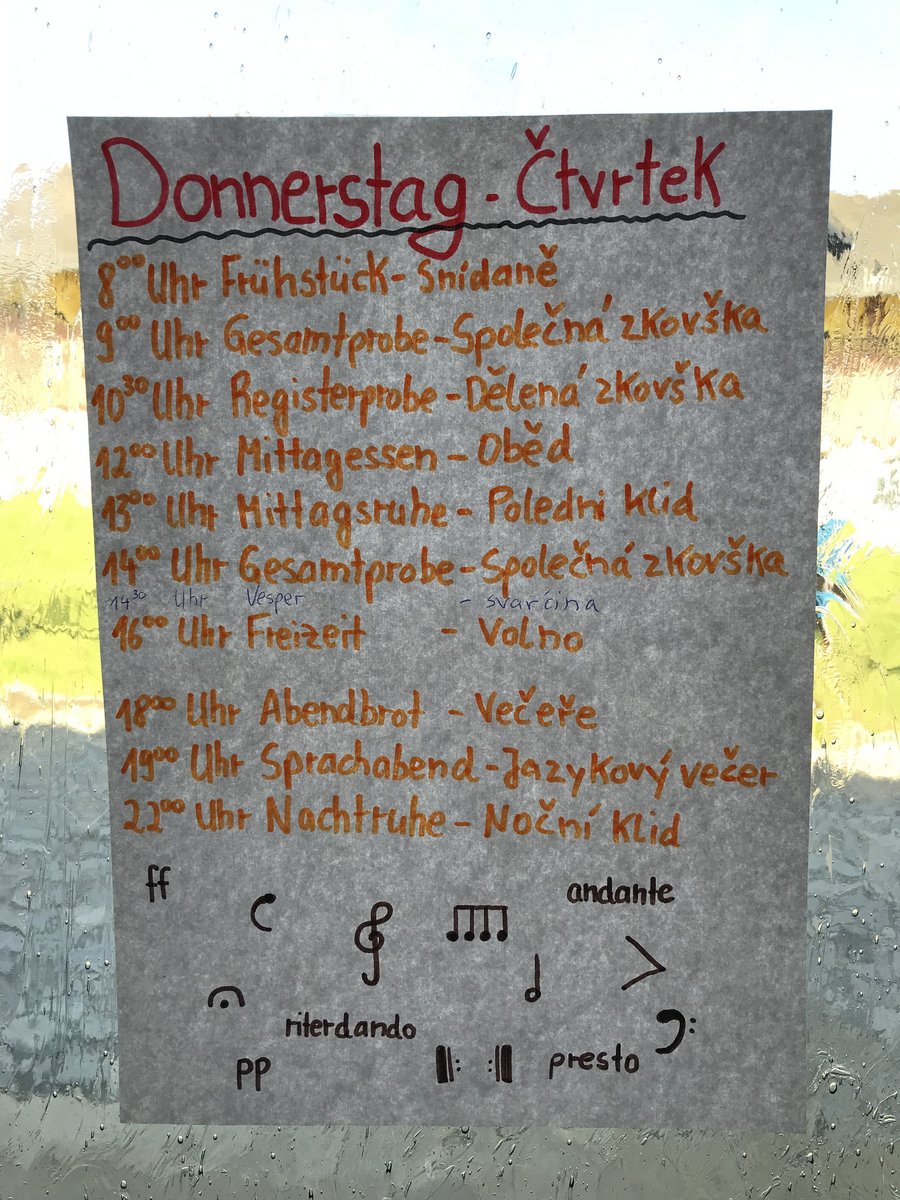 Donnerstag - Čtvrtek
8⁰⁰ Uhr Frühstück - Snídaně
9⁰⁰ Uhr Gesamtprobe - Společná zkovška
10³⁰ Uhr Registerprobe - Dělená zkovška
12⁰⁰ Uhr Mittagessen - Oběd
13⁰⁰ Uhr Mittagsruhe - Poledni klid
14⁰⁰ Uhr Gesamtprobe - Společná zkovška
14³⁰ Uhr Vesper - svarčina
16⁰⁰ Uhr Freizeit - Volno
18⁰⁰ Uhr Abendbrot - Večeře
19⁰⁰ Uhr Sprachabend - Jazykový večer
22⁰⁰ Uhr Nachtruhe - Noční klid
ff
andante
riterdando
pp
presto